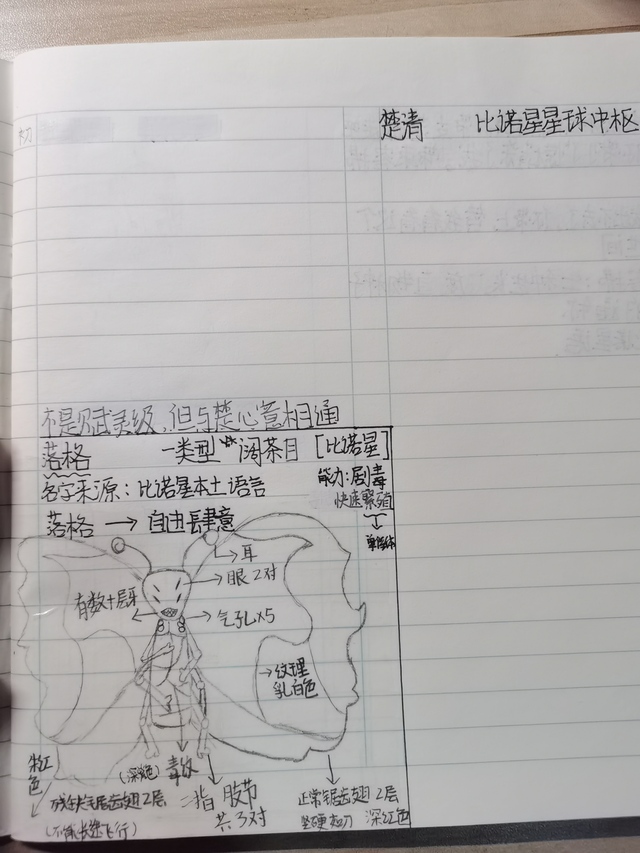 初
楚清 比诺星星球中枢
不是赋灵级,但与楚心意相通
落格 一类型 阔茶目 [比诺星]
名字来源:比诺星本土语言
能力:剧毒
快速繁殖
落格→自由肆意
单体
耳
眼2对
有数十层牙
气孔×5
纹理
乳白色
粉红色
(深色)毒纹
残缺锯齿翅2层
(不能长途飞行)
二指
股节
共3对
正常锯齿翅2层
坚硬如刀 深红色